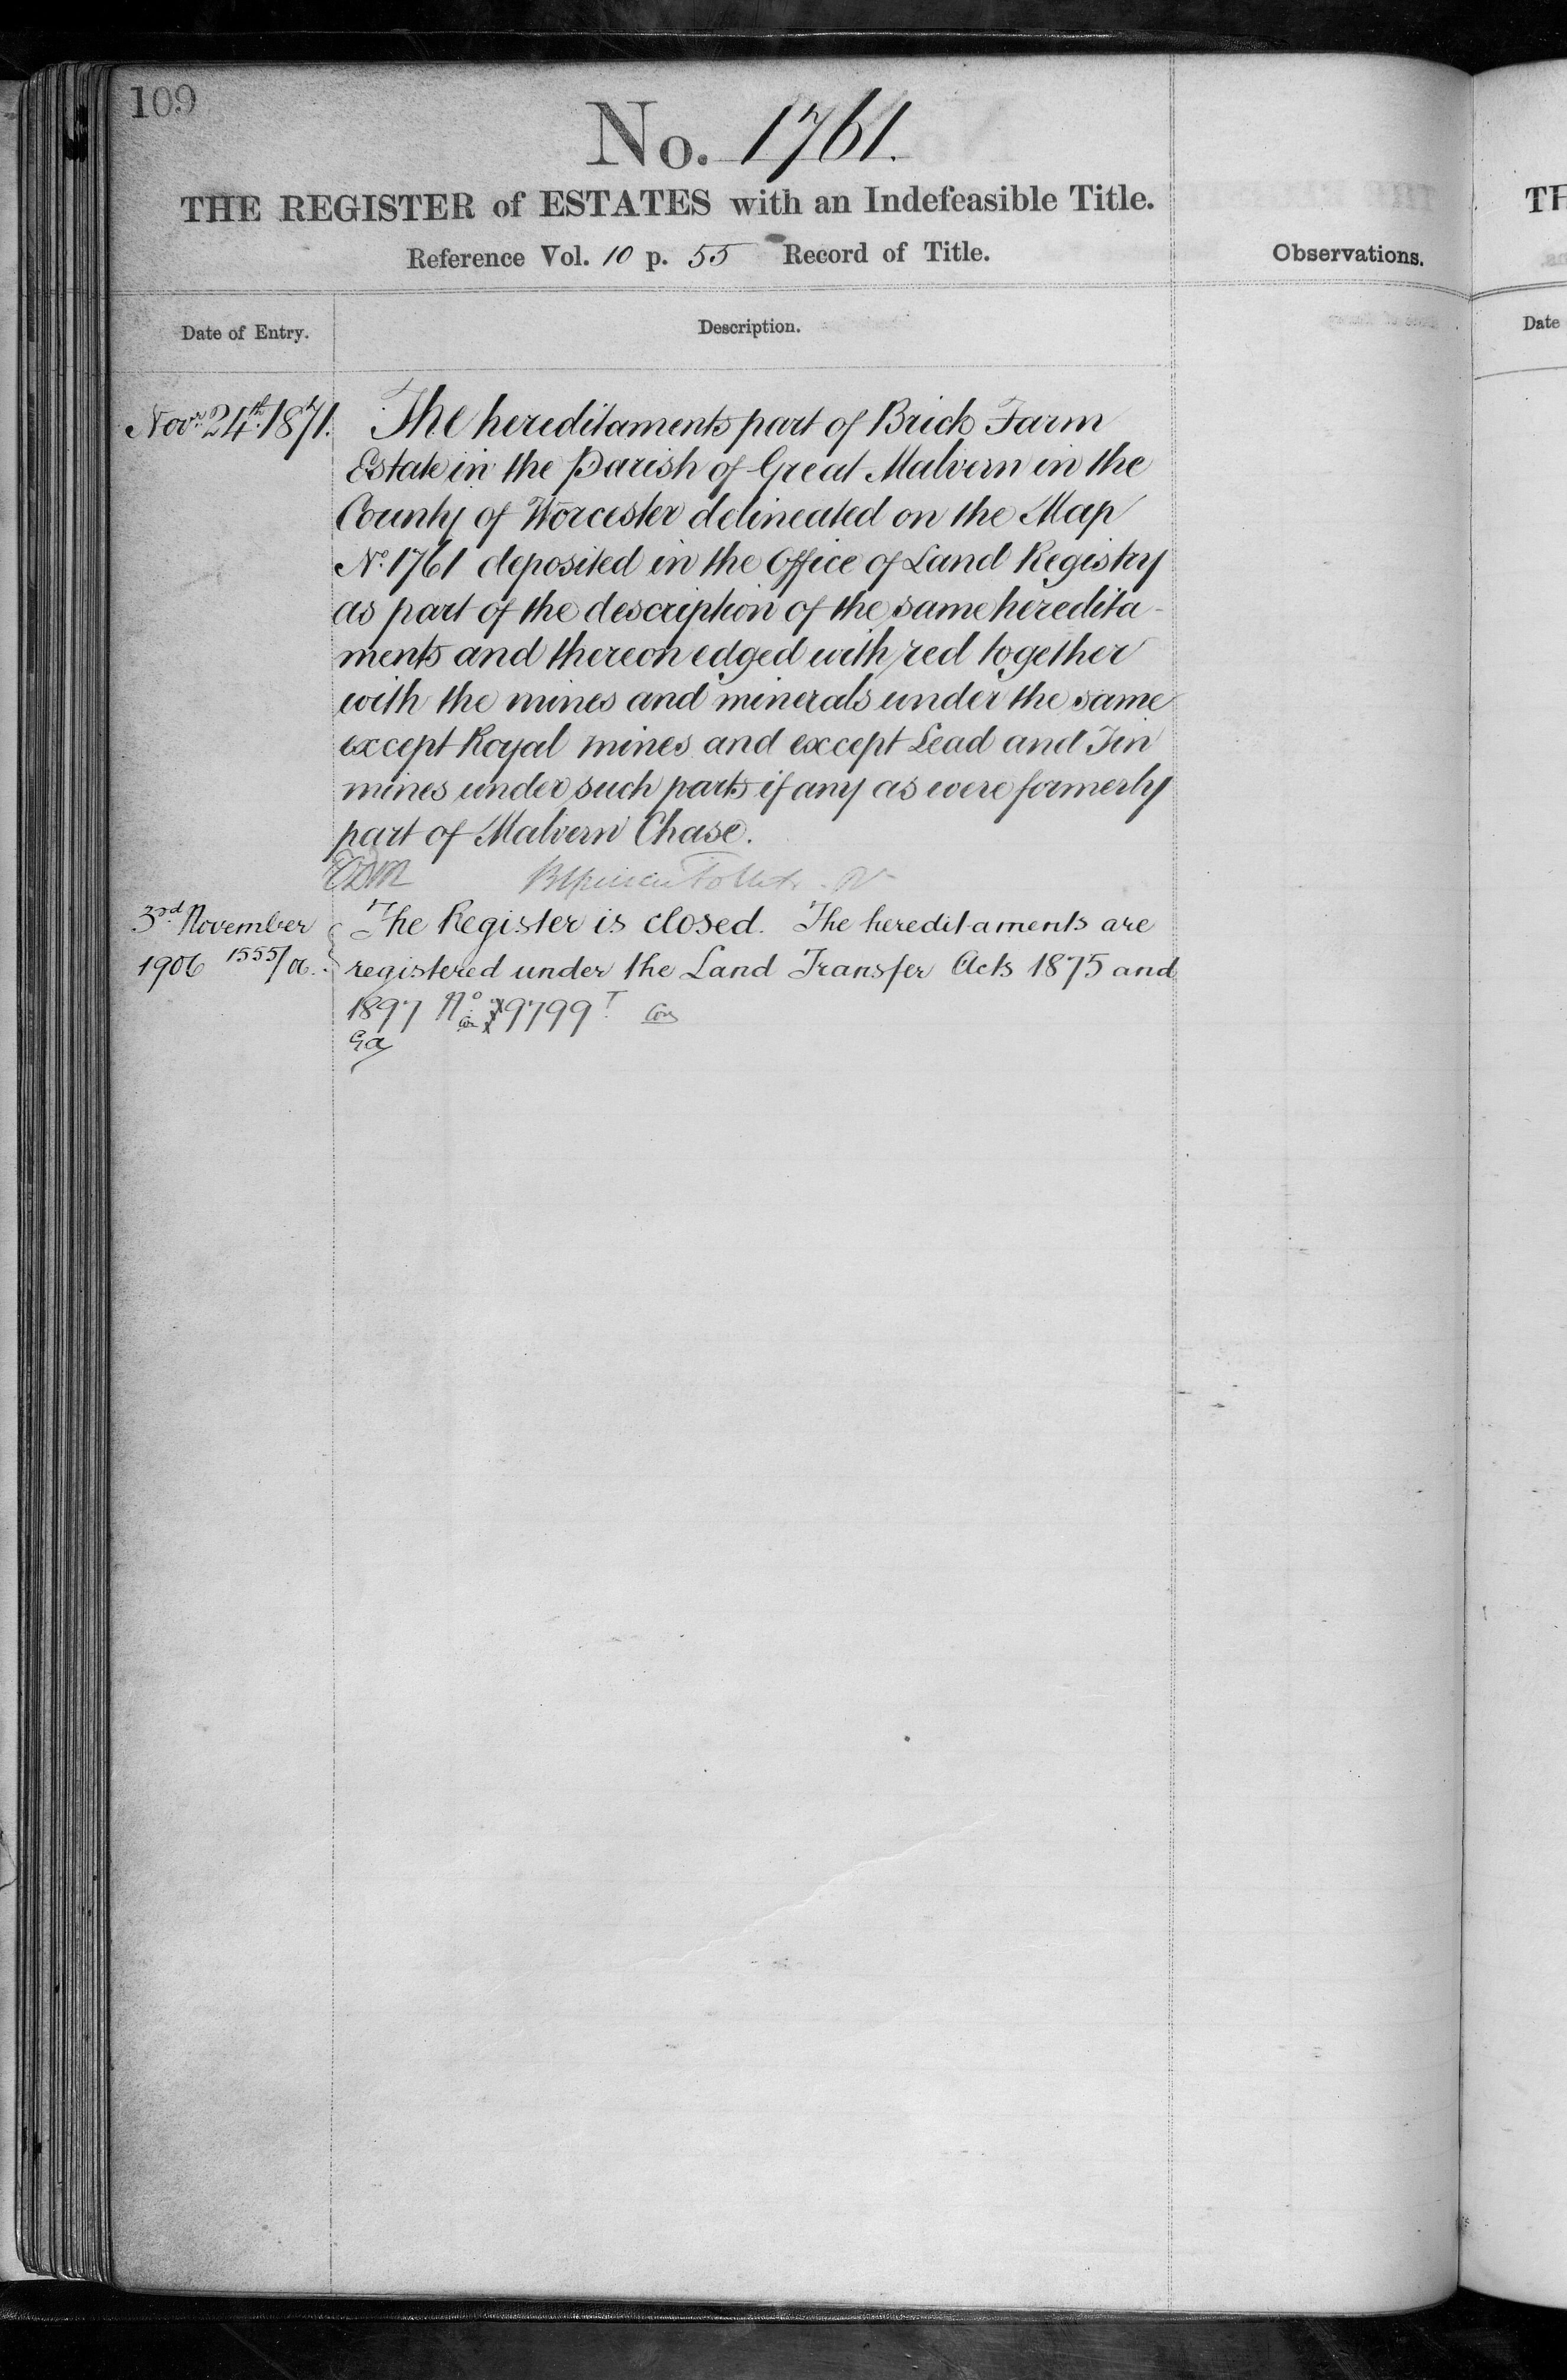 109
No. 1761.
THE REGISTER of ESTATES with an Indefeasible Title.
Reference Vol. 10 p. 55 Record of Title.
Observations.
Date of Entry.
Description.
Novr. 24th. 1871.
The hereditaments part of Brick Farm
Estate in the Parish of Great Malvern in the
County of Worcester delineated on the Map
No. 1761 deposited in the Office of Land Registry
as part of the description of the same heredita-
ments and thereon edged with red together
with the mines and minerals under the same
except Royal mines and except Lead and Tin
mines under such parts if any as were formerly
part of Malvern Chase.
3rd November
1906 1555/06.
The Register is closed. The hereditaments are
registered under the Land Transfer Acts 1875 and
1897 No. 9799
TH
Date